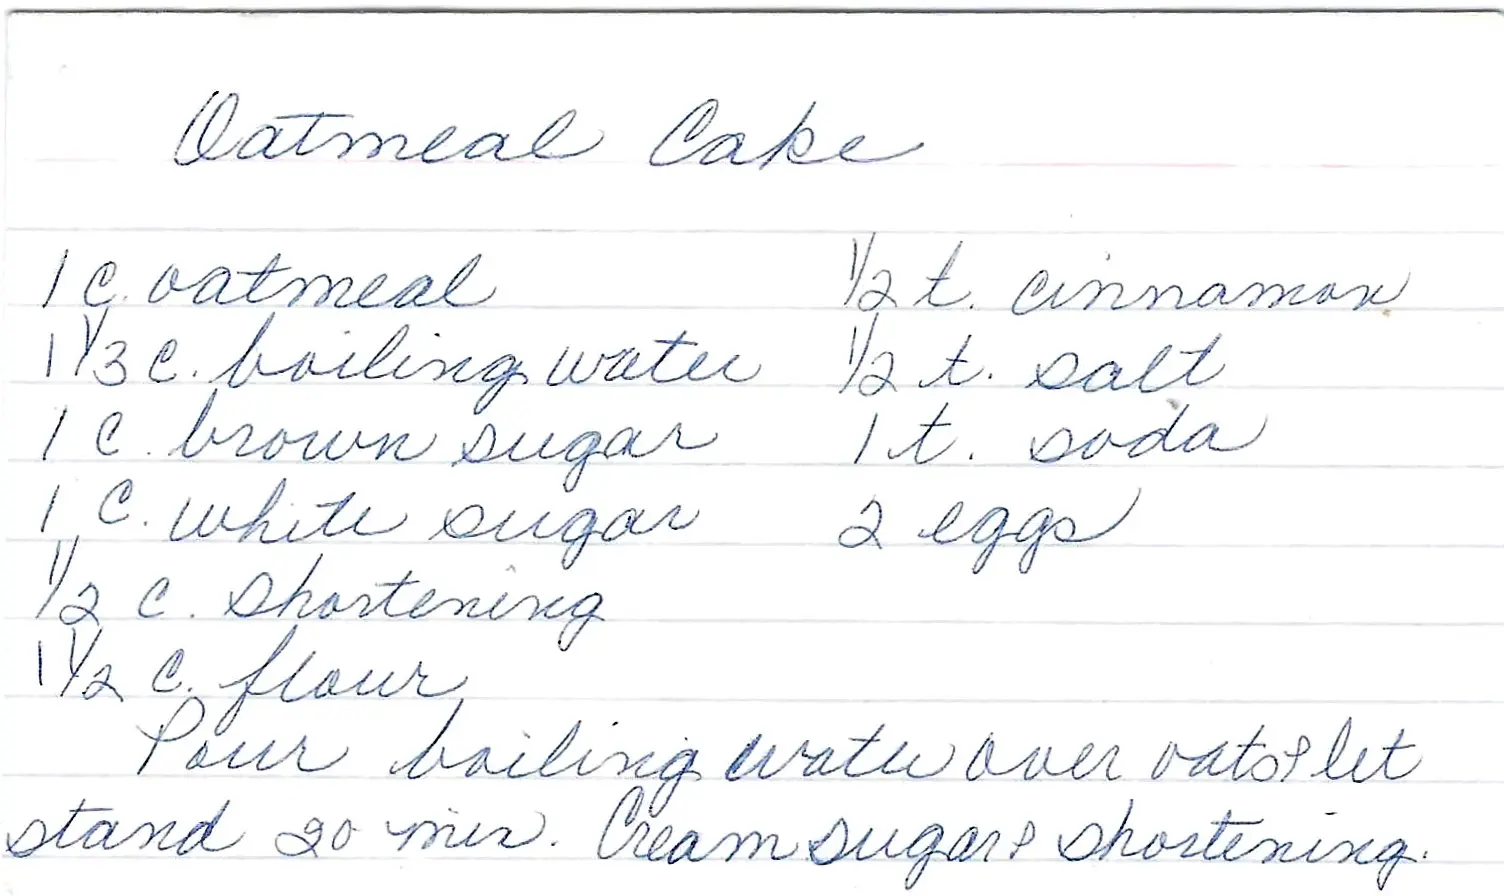 Oatmeal Cake
1 c. oatmeal
1 1/3 c. boiling water
1 c. brown sugar
1 c. white sugar
1/2 c. shortening
1 1/2 c. flour
1/2 t. cinnamon
1/2 t. salt
1 t. soda
2 eggs
Pour boiling water over oats & let
stand 20 min. Cream sugar & shortening.